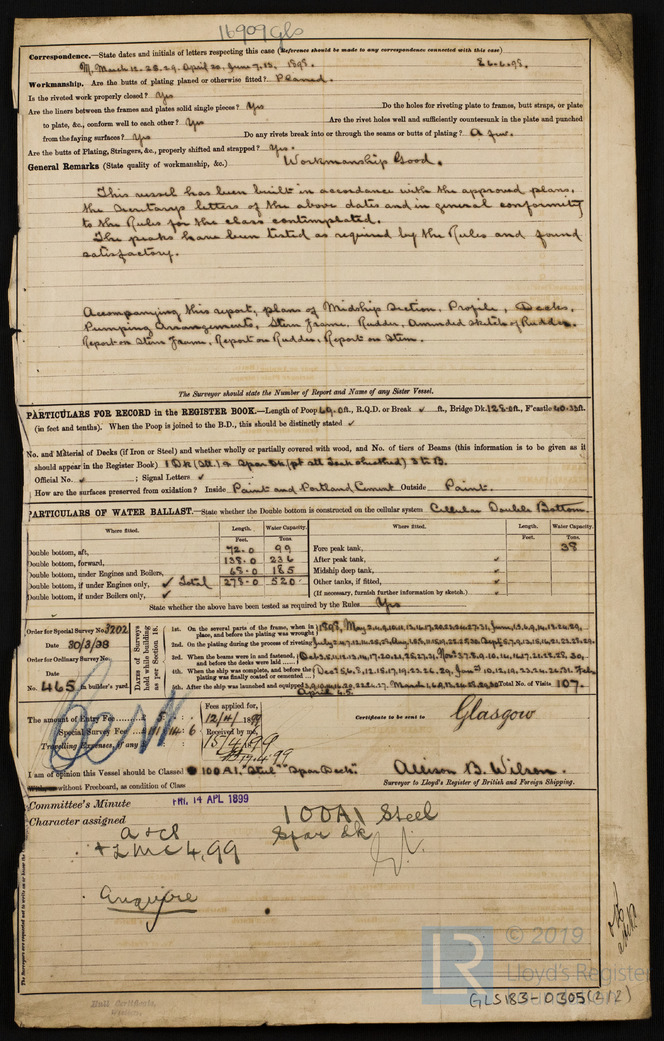 16909 Gls
Correspondence.—State dates and initials of letters respecting this case (Reference should be made to any correspondence connected with this case)
M. March 12. 28. 29. April 20. June 7. 13. 1898. E 6.4.98.
Workmanship. Are the butts of plating planed or otherwise fitted? Planed.
Is the riveted work properly closed? Yes
Are the liners between the frames and plates solid single pieces? Yes Do the holes for riveting plate to frames, butt straps, or plate
to plate, &c., conform well to each other? Yes Are the rivet holes well and sufficiently countersunk in the plate and punched
from the faying surfaces? Yes Do any rivets break into or through the seams or butts of plating? A few.
Are the butts of Plating, Stringers, &c., properly shifted and strapped? Yes.
General Remarks (State quality of workmanship, &c.) Workmanship Good.
This vessel has been built in accordance with the approved plans,
the Secretarys letters of the above dates and in general conformity
to the Rules for the class contemplated.
The peaks have been tested as required by the Rules and found
satisfactory.
Accompanying this report, plans of Midship Section, Profile, Decks,
Pumping Arrangements, Stern Frame, Rudder, Amended sketch of Rudder.
Report on Stern Frame, Report on Rudder, Report on Stem.
The Surveyor should state the Number of Report and Name of any Sister Vessel.
PARTICULARS FOR RECORD in the REGISTER BOOK.—Length of Poop 69.0 ft., R.Q.D. or Break ✓ ft., Bridge Dk. 128.0 ft., F'castle 40.33 ft.
(in feet and tenths). When the Poop is joined to the B.D., this should be distinctly stated ✓
No. and Material of Decks (if Iron or Steel) and whether wholly or partially covered with wood, and No. of tiers of Beams (this information is to be given as it
should appear in the Register Book) 1 Dk (Stl.) & Spar Dk (pt Stl Teak sheathed) 3 t B.
Official No. ✓ ; Signal Letters ✓
How are the surfaces preserved from oxidation? Inside Paint and Portland Cement Outside Paint.
PARTICULARS OF WATER BALLAST.—State whether the Double bottom is constructed on the cellular system Cellular Double Bottom.
Where fitted. Length. Water Capacity. Where fitted. Length. Water Capacity.
Feet. Tons. Feet. Tons.
Double bottom, aft, 72.0 99 Fore peak tank, 38
Double bottom, forward, 138.0 236 After peak tank, ✓
Double bottom, under Engines and Boilers, 68.0 185 Midship deep tank, ✓
Double bottom, if under Engines only, ✓ Total 278.0 520 Other tanks, if fitted, ✓
Double bottom, if under Boilers only, ✓ (If necessary, furnish further information by sketch.) ✓
State whether the above have been tested as required by the Rules Yes
Order for Special Survey No. 3202
Date 30/3/98
Order for Ordinary Survey No.
Date
No. 465 in builder's yard.
Dates of Surveys held while building as per Section 18.
1st. On the several parts of the frame, when in place, and before the plating was wrought
2nd. On the plating during the process of riveting
3rd. When the beams were in and fastened, and before the decks were laid
4th. When the ship was complete, and before the plating was finally coated or cemented
5th. After the ship was launched and equipped
April 4.5. Total No. of Visits 107.
The amount of Entry Fee £ 5
Special Survey Fee
Travelling Expenses, if any
Fees applied for,
12/4/1899
Received by me,
15/4/99
Certificate to be sent to Glasgow
I am of opinion this Vessel should be Classed 100A1. "Steel" "Spar Deck".
without Freeboard, as condition of Class
Allison B. Wilson.
Surveyor to Lloyd's Register of British and Foreign Shipping.
Committee's Minute FRI. 14 APL 1899
Character assigned 100A1 Steel
Spar Dk
A & CP
+ LMC 4,99
© 2019
LR
Lloyd's Register
Hull Certificate.
GLS183-0305(2/2)